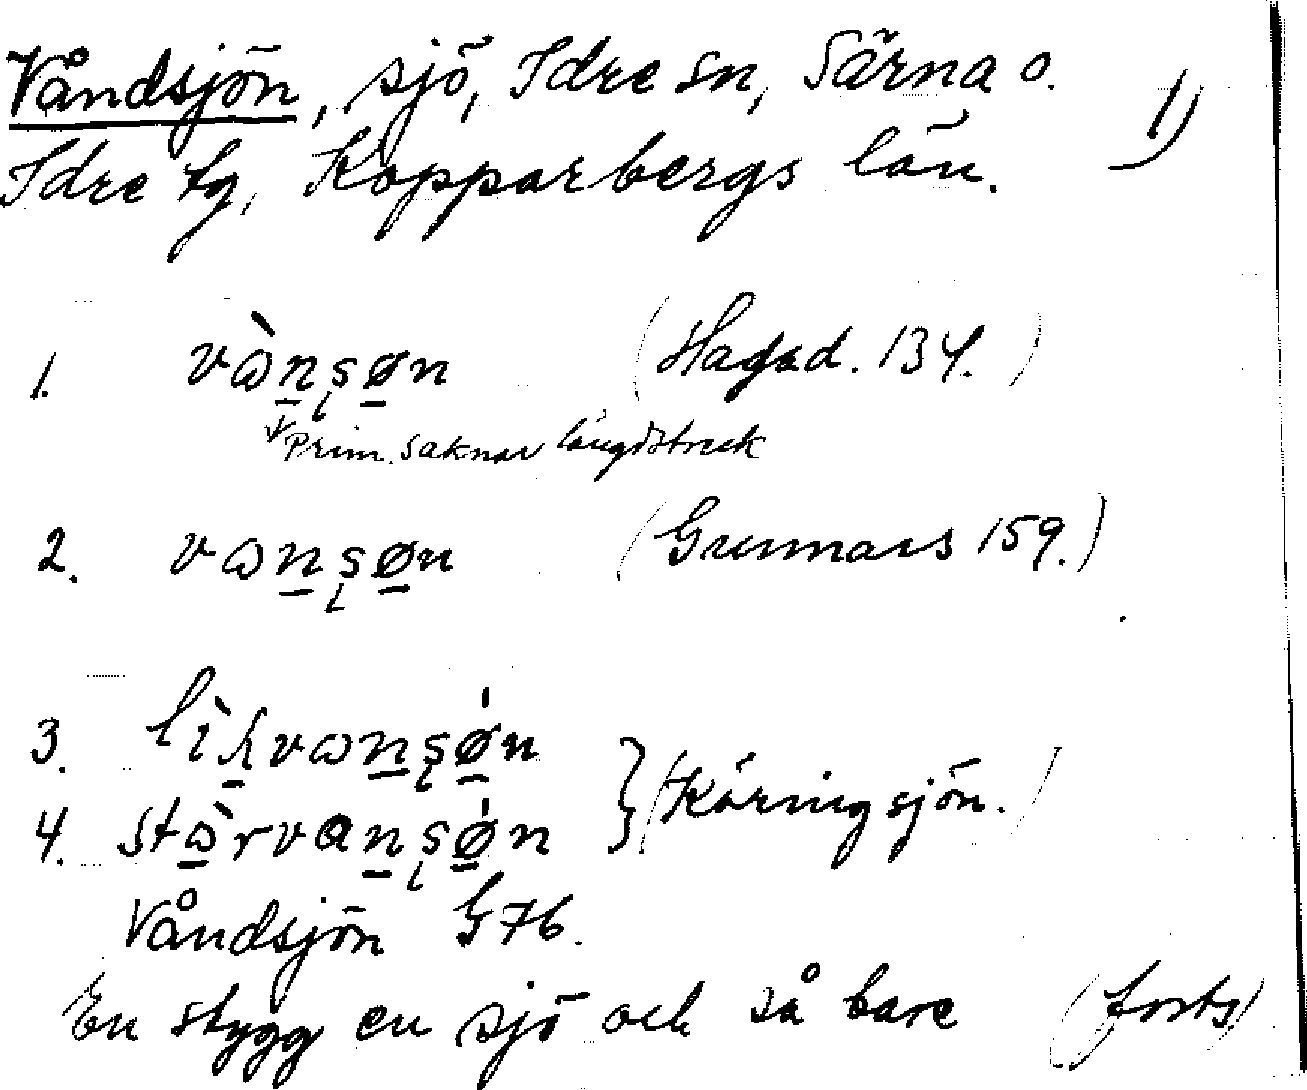 Våndsjön, sjö, Idre sn, Särna o. 1)
Idre tg, Kopparbergs län.
1. vὼn̠şø̠n (Hagåd. 134.)
↓ Prim. saknar längdstreck
2. vωn̠şø̠n (Gunnars 159.)
3. lìk̠vωn̠şǿ̠n
4. stὼ̠rvan̠şǿ̠n } (Körningsjön.)
Våndsjön G76.
En stygg en sjö och så bare (forts)